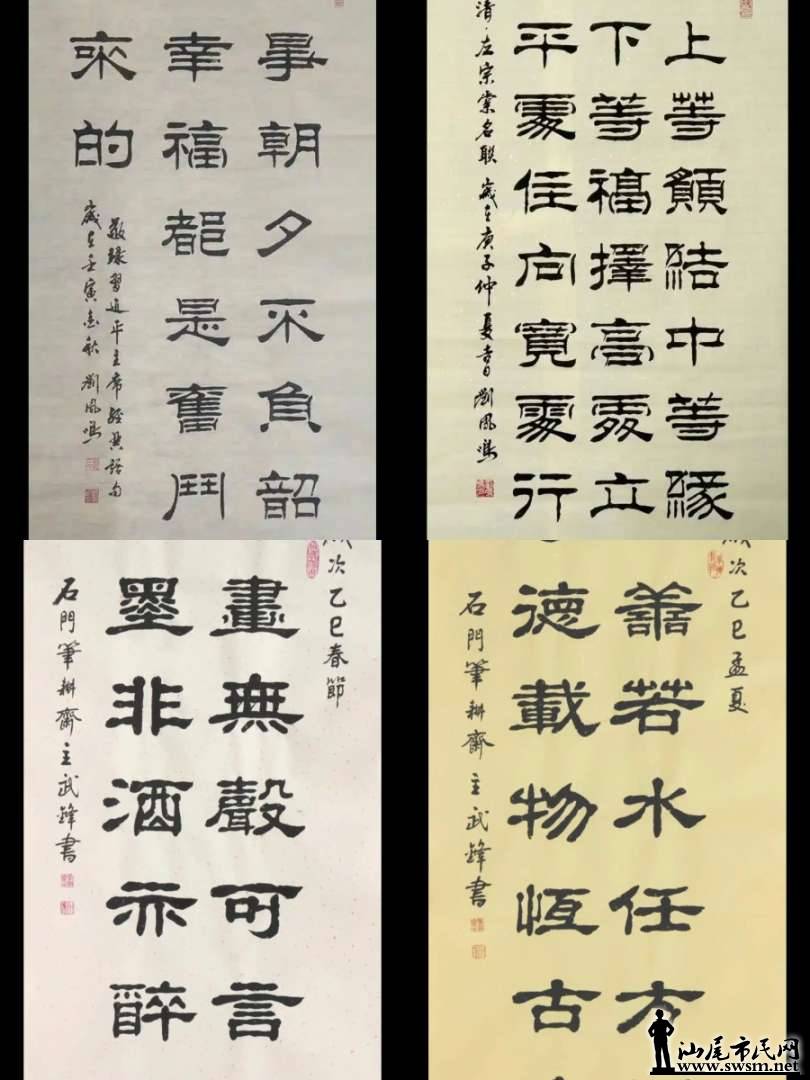 事朝夕不負韶
幸福都是奮鬥
來的
敬錄習近平主席經典語句
歲在壬寅金秋 劉鳳
上等願結中等緣
下等福擇高處立
平處住向寬處行
清·左宗棠名聯 歲在庚子仲夏書 劉鳳
歲次乙巳春節
畫無聲可言
墨非酒亦醉
石門筆耕齋主武鋒書
歲次乙巳孟夏
善若水任方
德載物恆古
石門筆耕齋主武鋒書
汕尾市民网
www.swsm.net